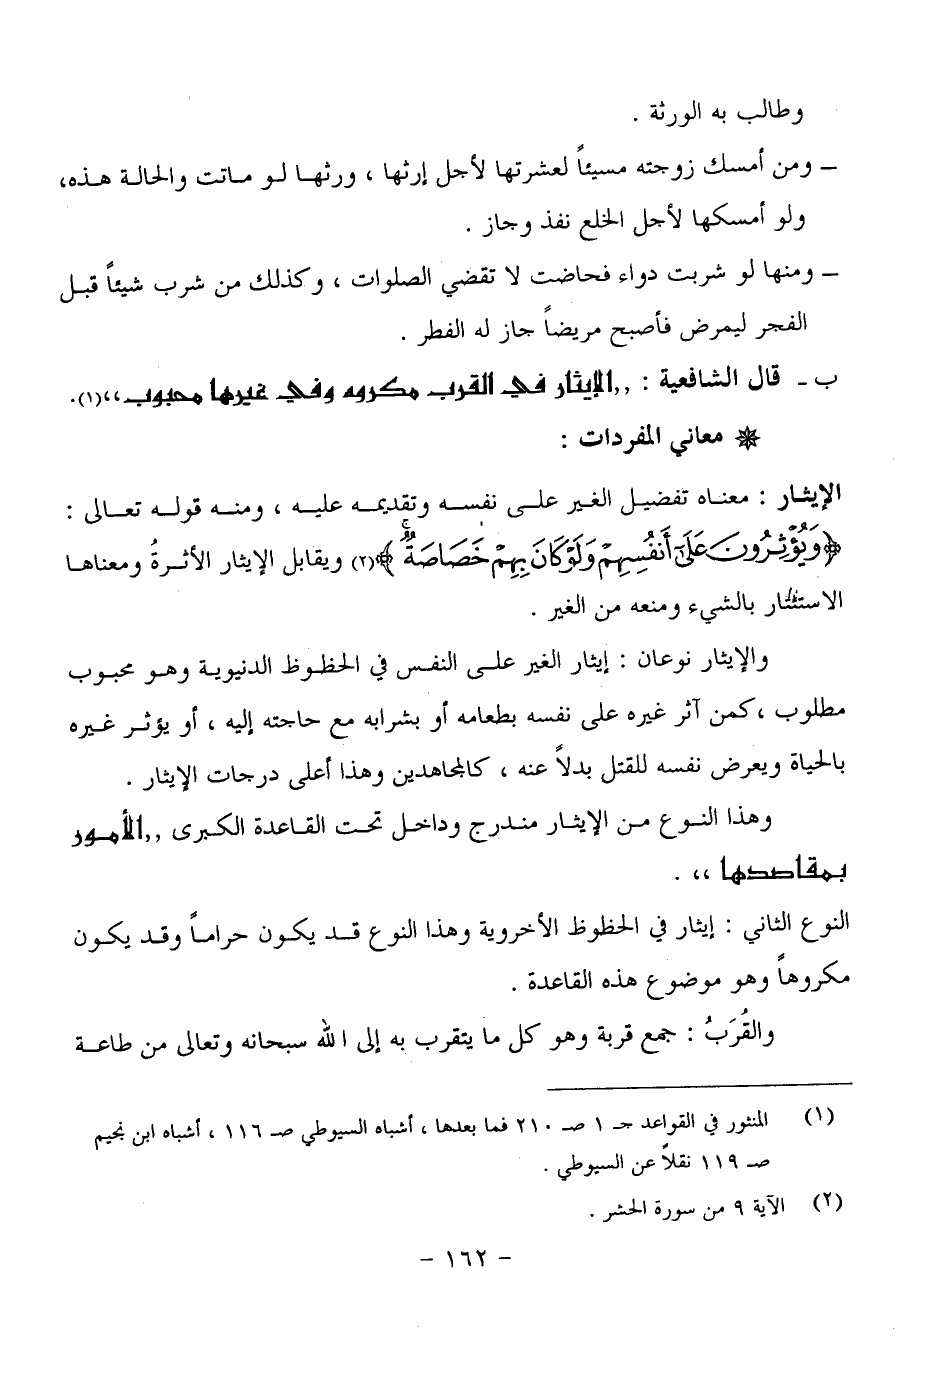 وطالب به الورثة .
ــ ومن أمسك زوجته مسيئاً لعشرتها لأجل إرثها ، ورثها لو ماتت والحالة هذه،
ولو أمسكها لأجل الخلع نفذ وجاز .
ــ ومنها لو شربت دواء فحاضت لا تقضي الصلوات ، وكذلك من شرب شيئاً قبل
الفجر ليمرض فأصبح مريضاً جاز له الفطر .
ب ـ قال الشافعية : ,,الإيثار في القرب مكروه وفي غيرها محبوب،،(١).
❋ معاني المفردات :
الإيثار : معناه تفضيل الغير على نفسه وتقديمه عليه ، ومنه قوله تعالى :
﴿وَيُؤْثِرُونَ عَلَىٰٓ أَنفُسِهِمْ وَلَوْ كَانَ بِهِمْ خَصَاصَةٌ ۚ﴾(٢) ويقابل الإيثار الأثرةُ ومعناها
الاستئثار بالشيء ومنعه من الغير .
والإيثار نوعان : إيثار الغير على النفس في الحظوظ الدنيوية وهو محبوب
مطلوب ،كمن آثر غيره على نفسه بطعامه أو بشرابه مع حاجته إليه ، أو يؤثر غيره
بالحياة ويعرض نفسه للقتل بدلاً عنه ، كالمجاهدين وهذا أعلى درجات الإيثار .
وهذا النوع من الإيثار مندرج وداخل تحت القاعدة الكبرى ,,الأمور
بمقاصدها ،، .
النوع الثاني : إيثار في الحظوظ الأخروية وهذا النوع قد يكون حراماً وقد يكون
مكروهاً وهو موضوع هذه القاعدة .
والقُرَبُ : جمع قربة وهو كل ما يتقرب به إلى الله سبحانه وتعالى من طاعة
(١) المنثور في القواعد جـ ١ صـ ٢١٠ فما بعدها ، أشباه السيوطي صـ ١١٦ ، أشباه ابن نجيم
صـ ١١٩ نقلاً عن السيوطي .
(٢) الآية ٩ من سورة الحشر .
- ١٦٢ -